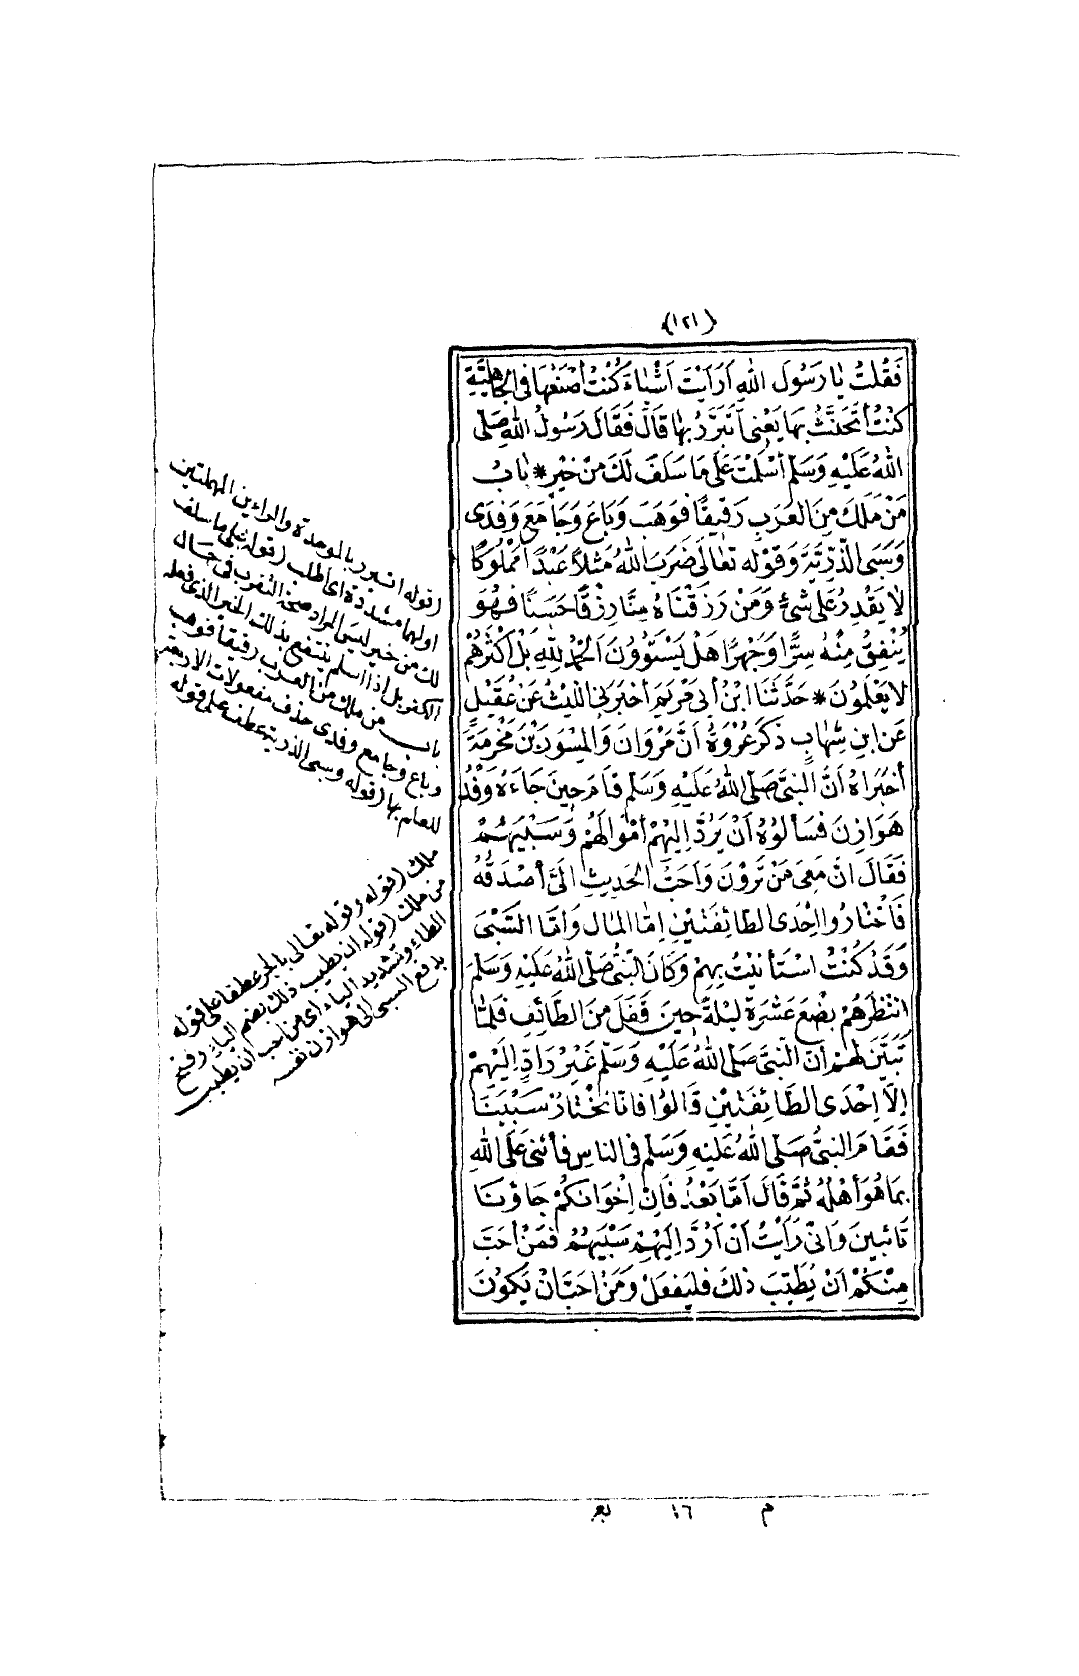 (١٢١)
فَقُلْتُ يَا رَسُولَ اللهِ اَرَاَيْتَ اَشْيَاءَ كُنْتُ اَصْنَعُهَا فِى الْجَاهِلِيَّةِ
كُنْتُ اَتَحَنَّثُ بِهَا يَعْنِى اَتَبَرَّرُ بِهَا قَالَ فَقَالَ رَسُولُ اللهِ صَلَّى
اللهُ عَلَيْهِ وَسَلَّمَ اَسْلَمْتَ عَلَى مَا سَلَفَ لَكَ مِنْ خَيْرٍ * بَابُ
مَنْ مَلَكَ مِنَ الْعَرَبِ رَقِيقًا فَوَهَبَ وَبَاعَ وَجَامَعَ وَفَدَى
وَسَبَى الذُّرِّيَّةَ وَقَوْلِهِ تَعَالَى ضَرَبَ اللهُ مَثَلاً عَبْدًا مَمْلُوكًا
لَا يَقْدِرُ عَلَى شَىْءٍ وَمَنْ رَزَقْنَاهُ مِنَّا رِزْقًا حَسَنًا فَهُوَ
يُنْفِقُ مِنْهُ سِرًّا وَجَهْرًا هَلْ يَسْتَوُونَ الْحَمْدُ لِلَّهِ بَلْ اَكْثَرُهُمْ
لَا يَعْلَمُونَ * حَدَّثَنَا ابْنُ أَبِى مَرْيَمَ أَخْبَرَنِى اللَّيْثُ عَنْ عُقَيْلٍ
عَنِ ابْنِ شِهَابٍ ذَكَرَ عُرْوَةُ أَنَّ مَرْوَانَ وَالْمِسْوَرَ بْنَ مَخْرَمَةَ
أَخْبَرَاهُ أَنَّ النَّبِىَّ صَلَّى اللهُ عَلَيْهِ وَسَلَّمَ قَامَ حِينَ جَاءَهُ وَفْدُ
هَوَازِنَ فَسَأَلُوهُ اَنْ يَرُدَّ اِلَيْهِمْ اَمْوَالَهُمْ وَسَبْيَهُمْ
فَقَالَ اِنَّ مَعِى مَنْ تَرَوْنَ وَاَحَبُّ الْحَدِيثِ اِلَىَّ أَصْدَقُهُ
فَاخْتَارُوا اِحْدَى الطَّائِفَتَيْنِ اِمَّا الْمَالَ وَاِمَّا السَّبْىَ
وَقَدْ كُنْتُ اسْتَأْنَيْتُ بِهِمْ وَكَانَ النَّبِىُّ صَلَّى اللهُ عَلَيْهِ وَسَلَّمَ
انْتَظَرَهُمْ بِضْعَ عَشْرَةَ لَيْلَةً حِينَ قَفَلَ مِنَ الطَّائِفِ فَلَمَّا
تَبَيَّنَ لَهُمْ اَنَّ النَّبِىَّ صَلَّى اللهُ عَلَيْهِ وَسَلَّمَ غَيْرُ رَادٍّ اِلَيْهِمْ
اِلَّا اِحْدَى الطَّائِفَتَيْنِ قَالُوا فَاِنَّا نَخْتَارُ سَبْيَنَا
فَقَامَ النَّبِىُّ صَلَّى اللهُ عَلَيْهِ وَسَلَّمَ فِى النَّاسِ فَأَثْنَى عَلَى اللهِ
بِمَا هُوَ أَهْلُهُ ثُمَّ قَالَ اَمَّا بَعْدُ فَاِنَّ اِخْوَانَكُمْ جَاؤُنَا
تَائِبِينَ وَاِنِّى رَاَيْتُ اَنْ اَرُدَّ اِلَيْهِمْ سَبْيَهُمْ فَمَنْ اَحَبَّ
مِنْكُمْ اَنْ يُطَيِّبَ ذٰلِكَ فَلْيَفْعَلْ وَمَنْ اَحَبَّ اَنْ يَكُونَ
(قوله اتبرر بالموحدة والراءين المهملتين
اولهما مشددة اى اطلب (قوله على ما سلف
لك من خير ليس المراد صحة التقرب فى حال
الكفر بل اذا اسلم ينتفع بذلك الخير الذى فعله
باب من ملك من العرب رقيقا فوهب
وباع وجامع وفدى حذف مفعولات الاربعة
للعلم بها (قوله وسبى الذرية عطف على قوله
ملك (قوله وقوله تعالى بالجر عطفا على قوله
من ملك (قوله ان يطيب ذلك بضم الياء وفتح
الطاء وتشديد الياء اى من احب ان يطيب
بدفع السبى الى هوازن نفسه
م ١٦ بع